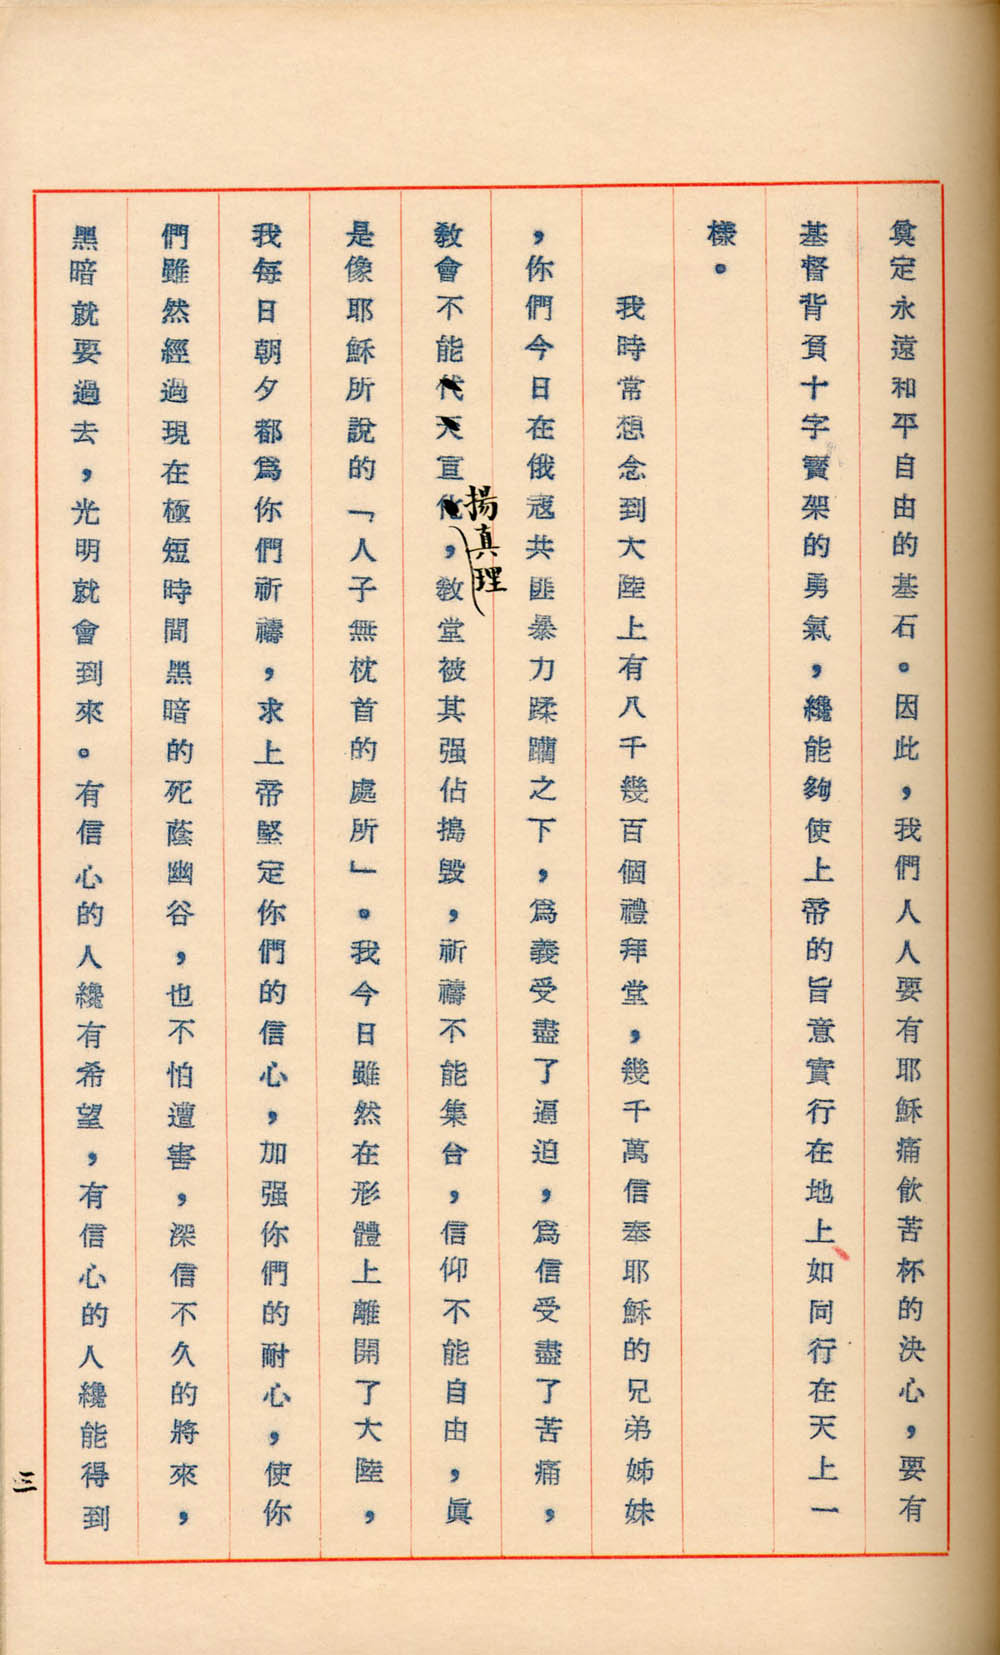 奠定永遠和平自由的基石。因此，我們人人要有耶穌痛飲苦杯的決心，要有
基督背負十字寶架的勇氣，纔能夠使上帝的旨意實行在地上如同行在天上一
樣。
我時常想念到大陸上有八千幾百個禮拜堂，幾千萬信奉耶穌的兄弟姊妹
，你們今日在俄寇共匪暴力蹂躪之下，為義受盡了逼迫，為信受盡了苦痛，
揚真理
教會不能代天宣化，教堂被其强佔搗毀，祈禱不能集合，信仰不能自由，眞
是像耶穌所說的「人子無枕首的處所」。我今日雖然在形體上離開了大陸，
我每日朝夕都為你們祈禱，求上帝堅定你們的信心，加强你們的耐心，使你
們雖然經過現在極短時間黑暗的死蔭幽谷，也不怕遭害，深信不久的將來，
黑暗就要過去，光明就會到來。有信心的人纔有希望，有信心的人纔能得到
三